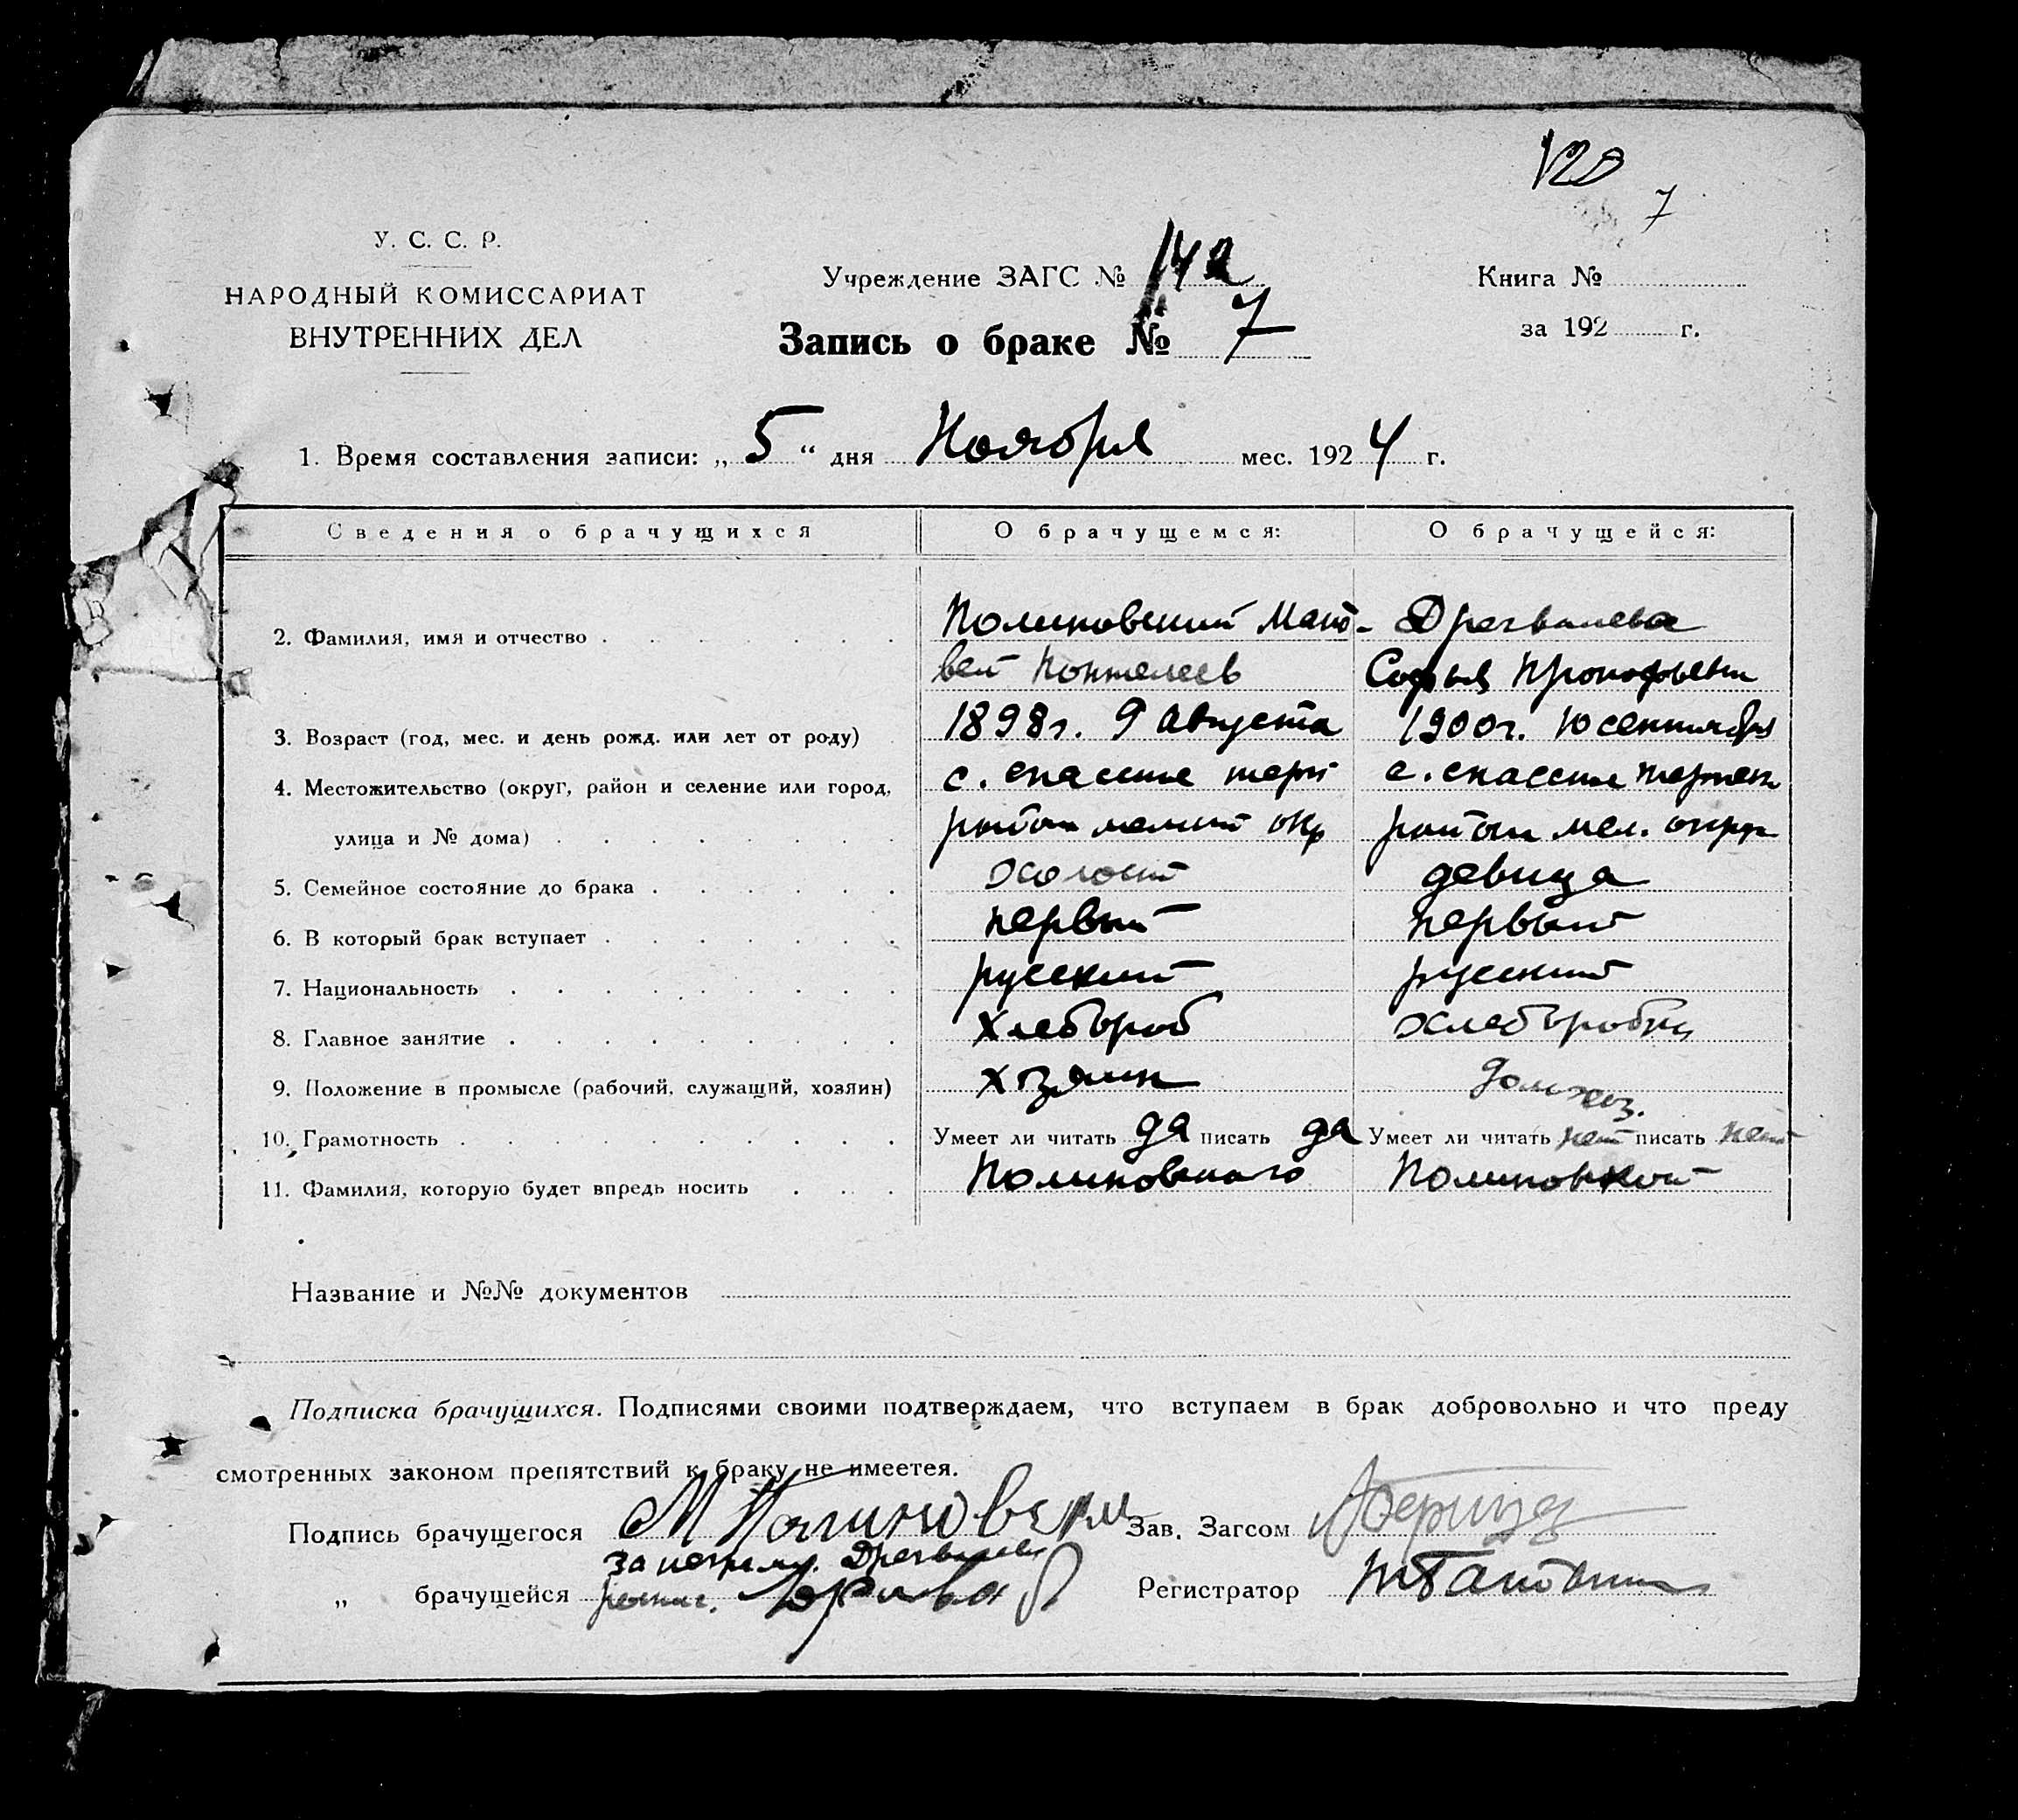 120
7
У. С. С. Р.
НАРОДНЫЙ КОМИССАРИАТ
ВНУТРЕННИХ ДЕЛ
Учреждение ЗАГС №
Книга №
за 192 г.
Запись о браке № 7
1. Время составления записи: „ 5 “ дня Ноября мес. 1924 г.
Сведения о брачущихся О брачущемся: О брачущейся:
2. Фамилия, имя и отчество Полиновский Мат-
вей Софья
3. Возраст (год, мес. и день рожд. или лет от роду) 1898г. 9 августа 1900г. 10 сентября
4. Местожительство (округ, район и селение или город, с. спасское с. спасское
улица и № дома) район окр район мел. округ
5. Семейное состояние до брака холост девица
6. В который брак вступает первый первый
7. Национальность русский русский
8. Главное занятие хлебороб
9. Положение в промысле (рабочий, служащий, хозяин) хозяин домхоз.
10. Грамотность Умеет ли читать да писать да Умеет ли читать нет писать нет
11. Фамилия, которую будет впредь носить
Название и №№ документов
Подписка брачущихся. Подписями своими подтверждаем, что вступаем в брак добровольно и что преду
смотренных законом препятствий к браку не имеетея.
Подпись брачущегося М Зав. Загсом
за неграм.
„ брачущейся Регистратор